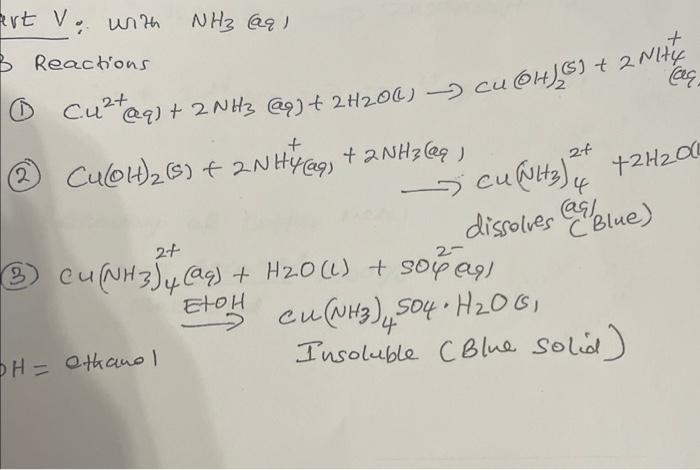 art V: with NH3 (aq)
3 Reactions
① Cu²⁺(aq) + 2NH3 (aq) + 2H2O(l) → Cu(OH)₂(s) + 2NH4⁺(aq)
② Cu(OH)2(s) + 2NH4⁺(aq) + 2NH3(aq)
→ Cu(NH3)₄²⁺(aq) + 2H2O(l
dissolves (Blue)
③ Cu(NH3)₄²⁺(aq) + H2O(l) + SO4²⁻(aq)
EtOH
→ Cu(NH3)₄SO4·H2O(s)
OH = ethanol
Insoluble (Blue solid)